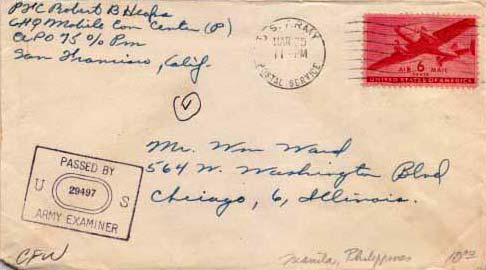 Pfc Robert B Heafos
GHQ Mobile Com Center (P)
APO 75 c/o Pm
San Francisco, Calif.
U.S. ARMY
MAR 25
11 PM
POSTAL SERVICE
AIR 6 MAIL
CENTS
UNITED STATES OF AMERICA
Mr. Wm Ward
564 W. Washington Blvd
Chicago, 6, Illinois.
PASSED BY
U 29497 S
ARMY EXAMINER
Manila, Philippines